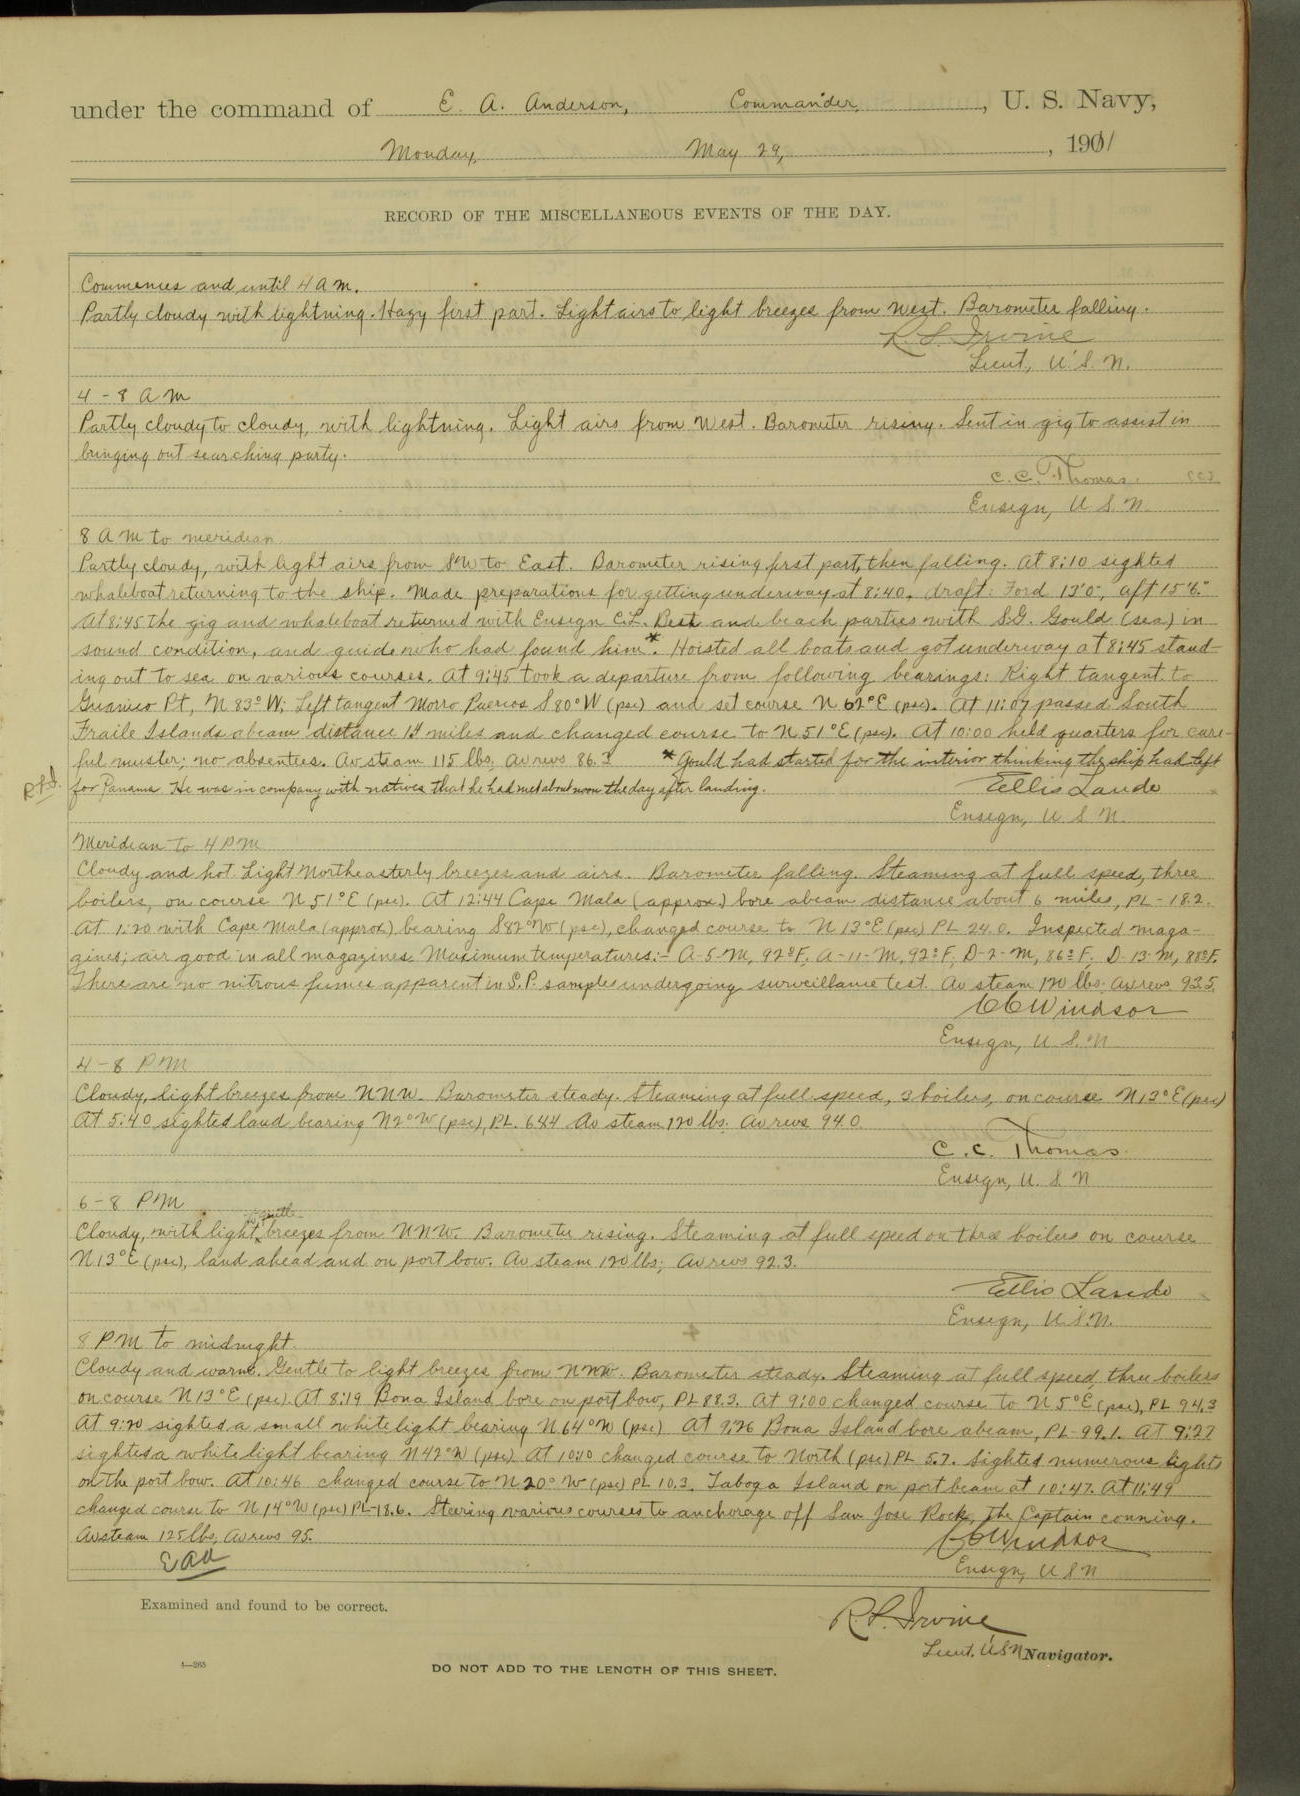 under the command of E. A. Anderson, Commander, U. S. Navy,
Monday, May 29, 1911
RECORD OF THE MISCELLANEOUS EVENTS OF THE DAY.
Commences and until 4 a m.
Partly cloudy with lightning. Hazy first part. Light airs to light breezes from West. Barometer falling.
R. S. Irvine
Lieut., U. S. N.
4 - 8 a m
Partly cloudy to cloudy, with lightning. Light airs from West. Barometer rising. Sent in gig to assist in
bringing out searching party.
C. C. Thomas
Ensign, U S N.
8 A M to meridian
Partly cloudy, with light airs from SW to East. Barometer rising first part, then falling. At 8:10 sighted
whaleboat returning to the ship. Made preparations for getting underway at 8:40. draft: Ford 13'0", aft 15'6."
At 8:45 the gig and whaleboat returned with Ensign C.L. Best and beach parties with S.G. Gould (sea) in
sound condition, and guide who had found him*. Hoisted all boats and got underway at 8:45 stand-
ing out to sea on various courses. At 9:45 took a departure from following bearings: Right tangent to
Guanico Pt, N 83° W; Left tangent Morro Puercos S 80° W (psc) and set course N 62° E (psc). At 11:07 passed South
Fraile Islands abeam distance miles and changed course to N 51° E (psc). At 10:00 held quarters for care-
ful muster; no absentees. Av steam 115 lbs; Av revs 86.3 *Gould had started for the interior thinking the ship had left
for Panama. He was in company with natives that he had met about noon the day after landing.
R.S.I.
Ellis Lando
Ensign, U S N.
Meridian to 4 P M
Cloudy and hot. Light Northeasterly breezes and airs. Barometer falling. Steaming at full speed, three
boilers, on course N 51° E (psc). At 12:44 Cape Mala (approx.) bore abeam distance about 6 miles, PL - 18.2.
At 1:20 with Cape Mala (approx) bearing S 82° W (psc), changed course to N 13° E (psc) PL 24.0. Inspected maga-
zines; air good in all magazines. Maximum temperatures:- A-5-M, 92° F; A-11-M, 92° F; D-2-M, 86° F; D-13-M, 88° F.
There are no nitrous fumes apparent in S.P. samples undergoing surveillance test. Av steam 120 lbs. Av revs 93.5.
C C Windsor
Ensign, U S. N
4 - 8 P M
Cloudy, light breezes from NNW. Barometer steady. Steaming at full speed, 3 boilers, on course N 13° E (psc)
At 5:40 sighted land bearing N 2° W (psc), PL. 68.4 Av steam 120 lbs. Av revs 94.0.
C. C. Thomas
Ensign, U. S. N
6 - 8 P M
to gentle
Cloudy, with light breezes from NNW. Barometer rising. Steaming at full speed on three boilers on course
N 13° E (psc), land ahead and on port bow. Av steam 120 lbs; Av revs 92.3.
Ellis Lando
Ensign, U.S.N.
8 P M to midnight.
Cloudy and warm. Gentle to light breezes from NNW. Barometer steady. Steaming at full speed three boilers
on course N 13° E (psc). At 8:19 Bona Island bore on port bow, PL 88.3. At 9:00 changed course to N 5° E (psc), PL 94.3
At 9:20 sighted a small white light bearing N 64° W (psc) At 9:26 Bona Island bore abeam, PL-99.1. At 9:27
sighted a white light bearing N 42° W (psc). At 10:10 changed course to North (psc) PL 5.7. Sighted numerous lights
on the port bow. At 10:46 changed course to N 20° W (psc) PL 10.3. Taboga Island on port beam at 10:47. At 11:49
changed course to N 14° W (psc) PL-18.6. Steering various courses to anchorage off San Jose Rock, The Captain conning.
Av steam 125 lbs, Av revs 95.
C C Windsor
Ensign, U S N
E A A
Examined and found to be correct.
R. S. Irvine
Lieut. U S N Navigator.
4—265
DO NOT ADD TO THE LENGTH OF THIS SHEET.